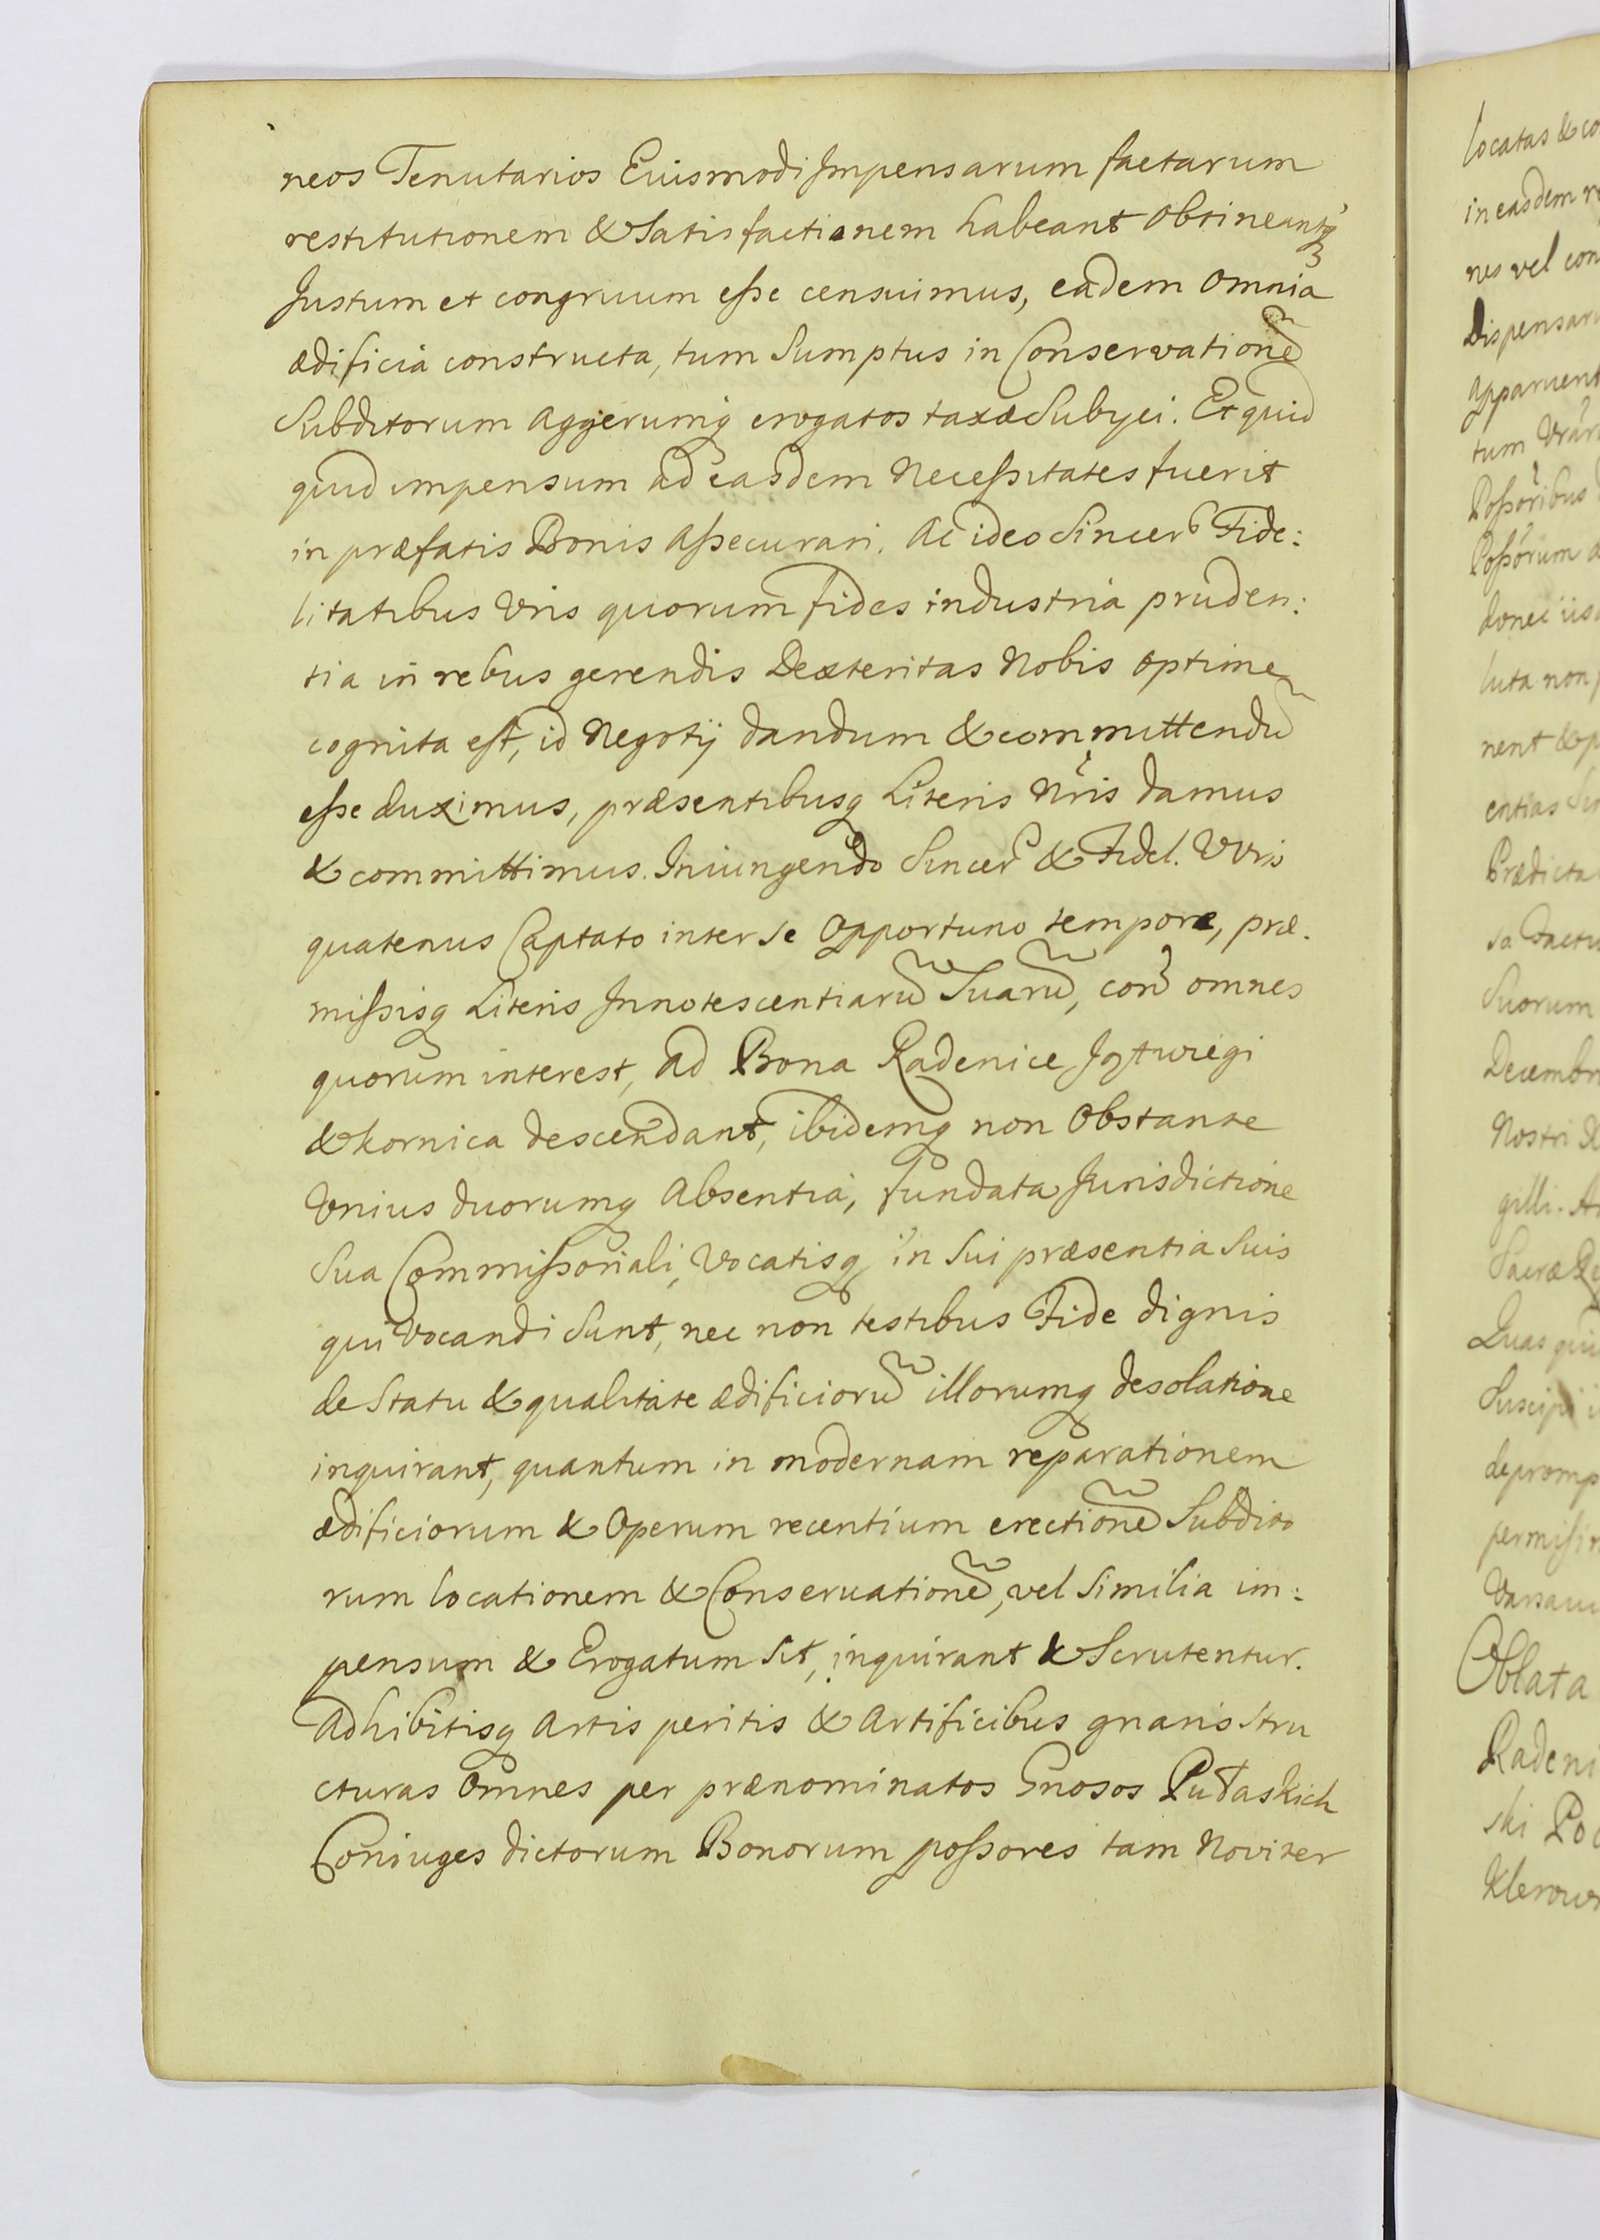 neos Tenutarios Eiusmodi Impensarum factarum
restitutionem & Satisfactionem habeant obtineantq̃
Justum et congruum eſse censuimus, eadem omnia
ædificia constructa, tum Sumptus in Conservationẽ
Subditorum Aggerumq̃ erogatos taxæ Subijci. Et quid
quid impensum ad easdem Neceſsitates fuerit
in præfatis Bonis Aſsecurari. Ac ideo Sincerᵇ Fide:
litatibus Vris quorum fides industria pruden:
tia in rebus gerendis Dexteritas Nobis optime
cognita est, id Negotij dandum & committendũ
eſse duximus, præsentibusq̃ Literis Nr̃is damus
& committimus. Iniungendo Sincerᵇ & Fidel. Vvris
quatenus Captato inter se Opportuno tempore, præ.
miſsisq̃ Literis Innotescentiarũ Suarũ, corã omnes
quorum interest, ad Bona Radenice Joztwięgi
& kornica descendant, ibidemq̃ non Obstante
Vnius duorumq̃ Absentia, fundata Jurisdictione
Sua Commiſsoriali, Vocatisq̃ in Sui præsentia Suis
qui Vocandi Sunt, nec non testibus Fide dignis
de Statu & qualitate ædificiorũ illorumq̃ desolatione
inquirant, quantum in modernam reparationem
ædificiorum & Operum recentium erectionẽ Subdito
rum locationem & Conseruationẽ, vel Similia im:
pensum & Erogatum Sit, inquirant & Scrutentur.
Adhibitisq̃ Artis peritis & Artificibus gnaris Stru
cturas Omnes per prænominatos Gnosos Pułaskich
Coniuges dictorum Bonorum poſsores tam Noviter
locatas & co
in easdem re
nes vel con
Dispensaru
apparuent
tum Vrar
Poſsoribus
Poſsorum a
donec iisd
luta non p
nent & p
entias Sin
Prædicta
Sa Factu
Suorum
Decembri
Nostri
gilli. A
Sacræ Re
Quas qui
Suscipi i
depromp
permiſi
Varsav
Oblata
Radeni
ski Po
Klerow